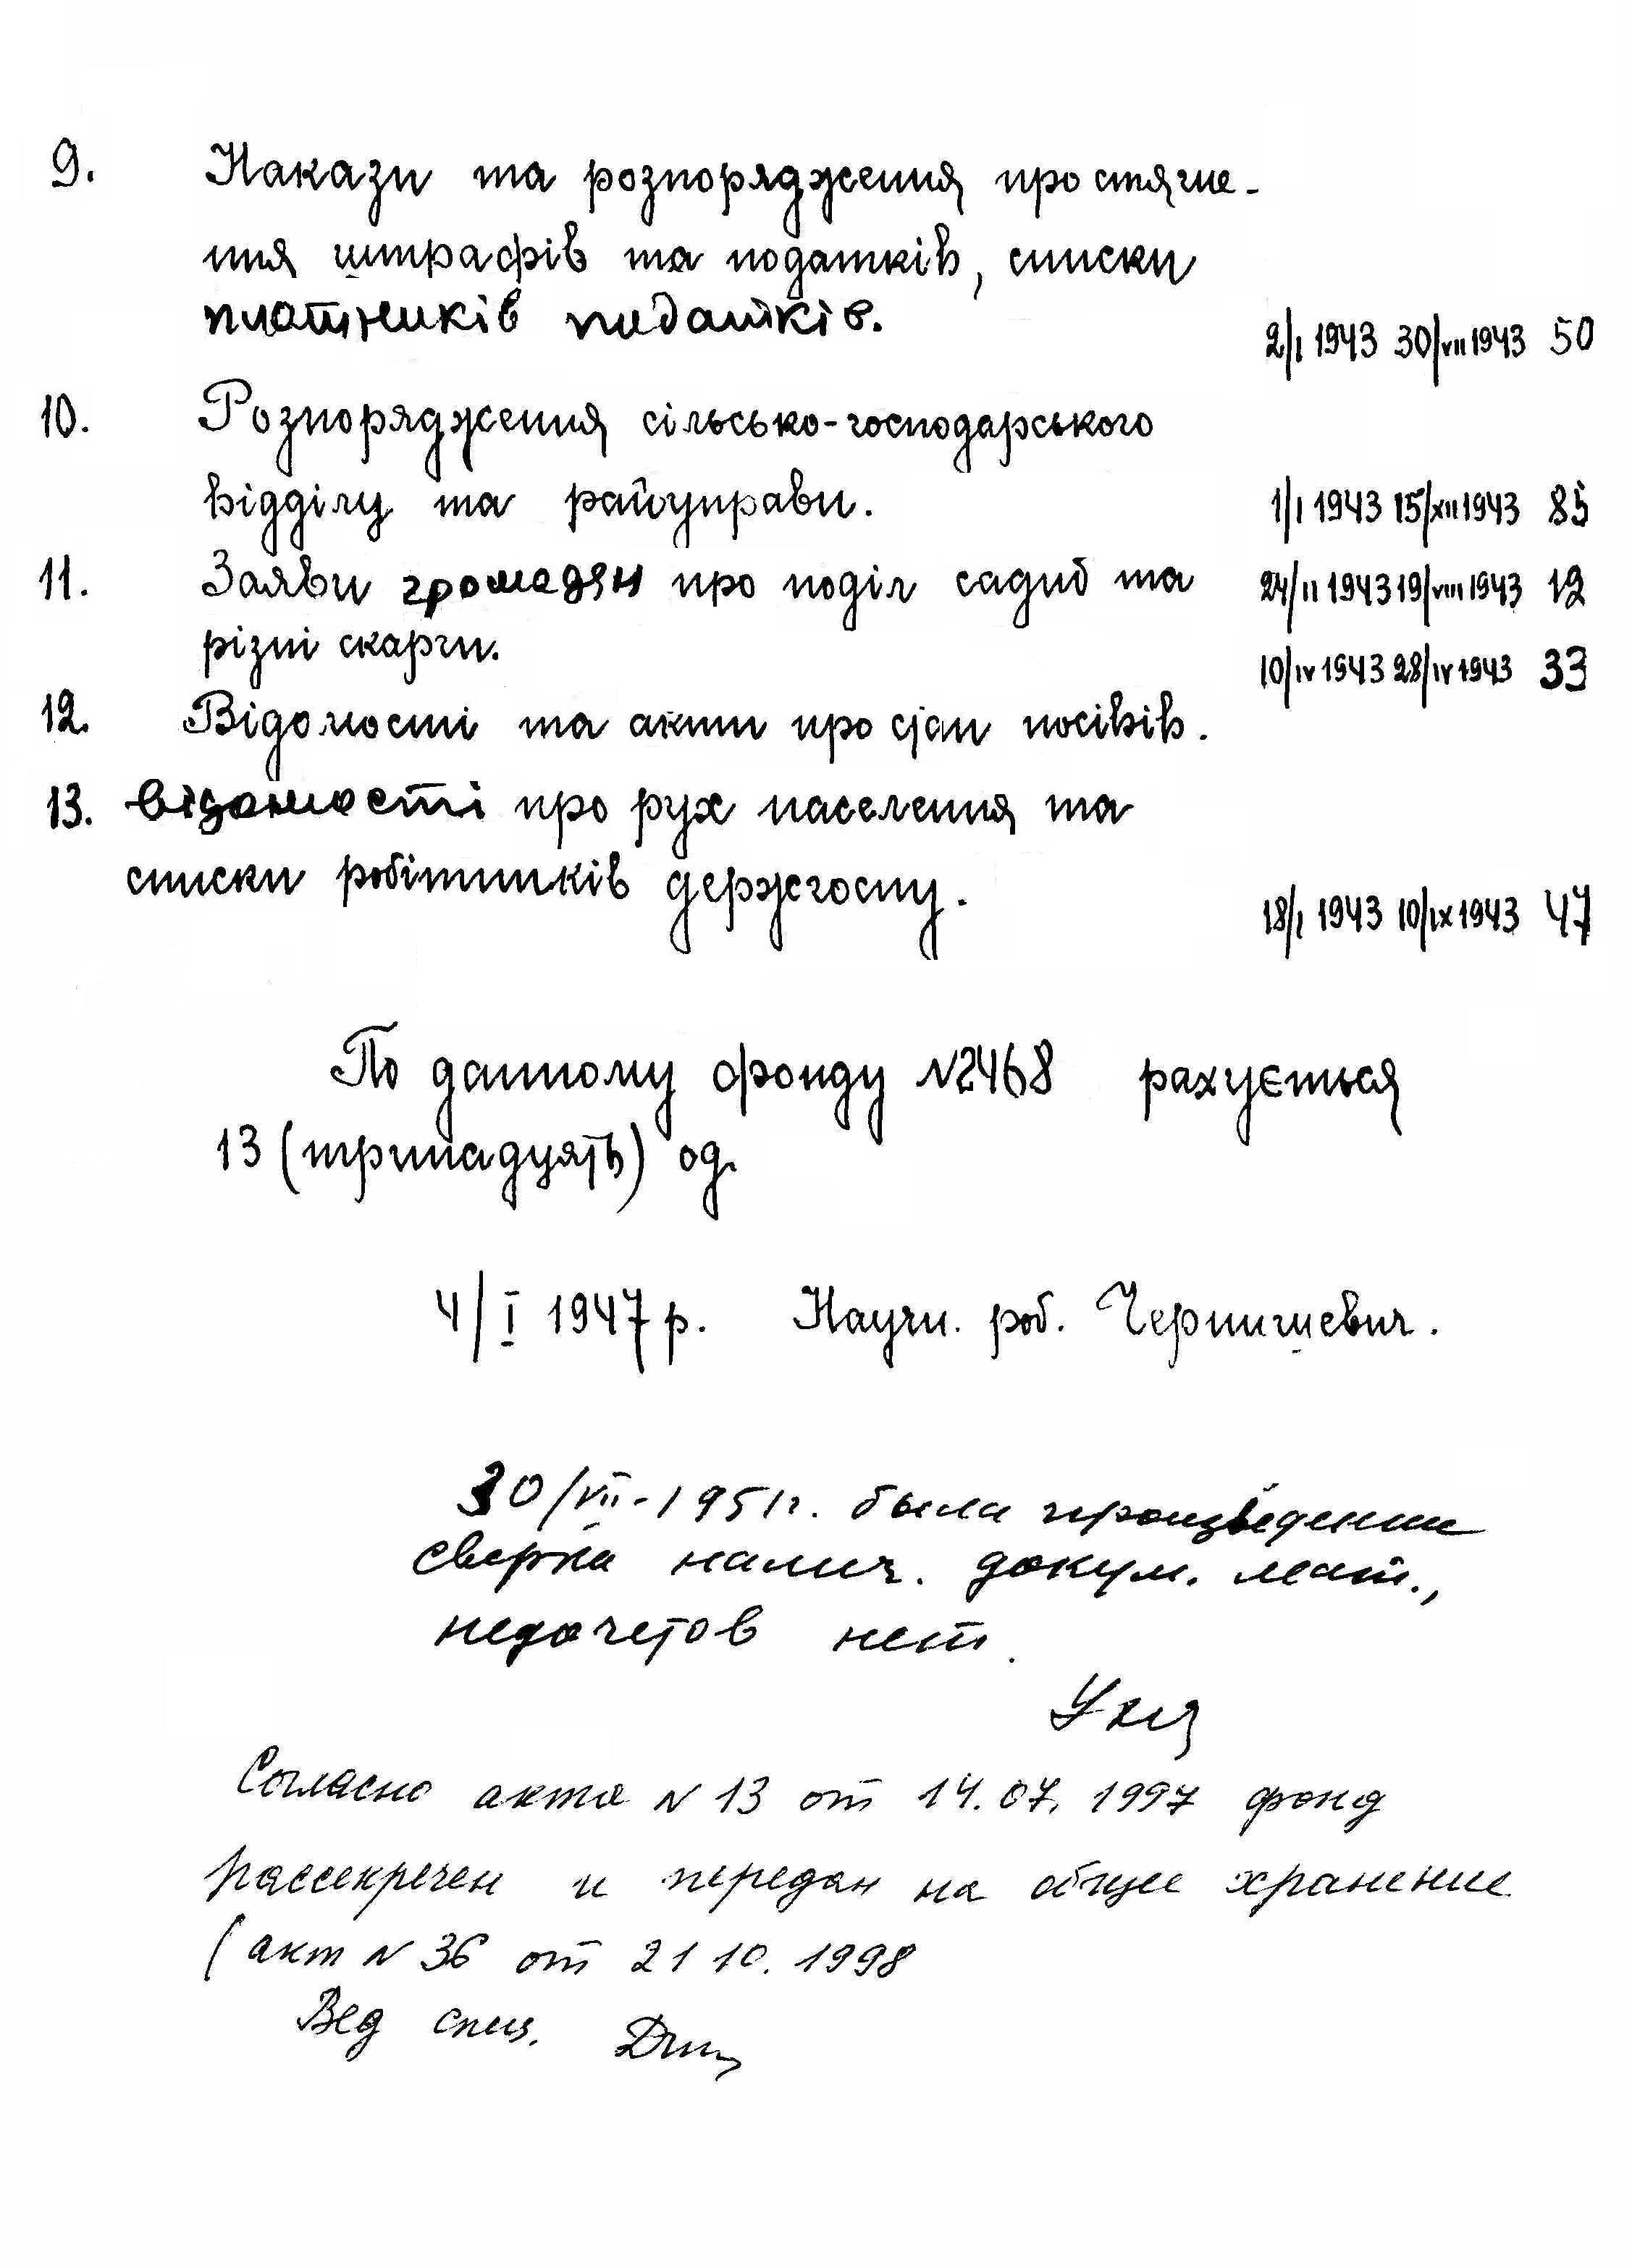 9. Накази та розпорядження про стягне-
ння штрафів та податків, списки
платників податків. 2/I 1943 30/VII 1943 50
10. Розпорядження сільсько-господарського
відділу та райуправи. 1/I 1943 15/XII 1943 85
11. Заяви громадян про поділ садиб та 24/II 1943 19/VIII 1943 12
різні скарги. 10/IV 1943 28/IV 1943 33
12. Відомості та акти про стан посівів.
13. Відомості про рух населення та
списки робітників держгоспу. 18/I 1943 10/IX 1943 47
По данному фонду N2468 рахується
13 (тринадцять) од.
4/I 1947 р. Научн. роб.
30/VII-1951г. была произведение
сверка налич. докум. мат.,
недочетов нет.
Согласно акта N 13 от 14.07.1997 фонд
рассекречен и передан на общее хранение
(акт N 36 от 21 10. 1998
Вед спец.